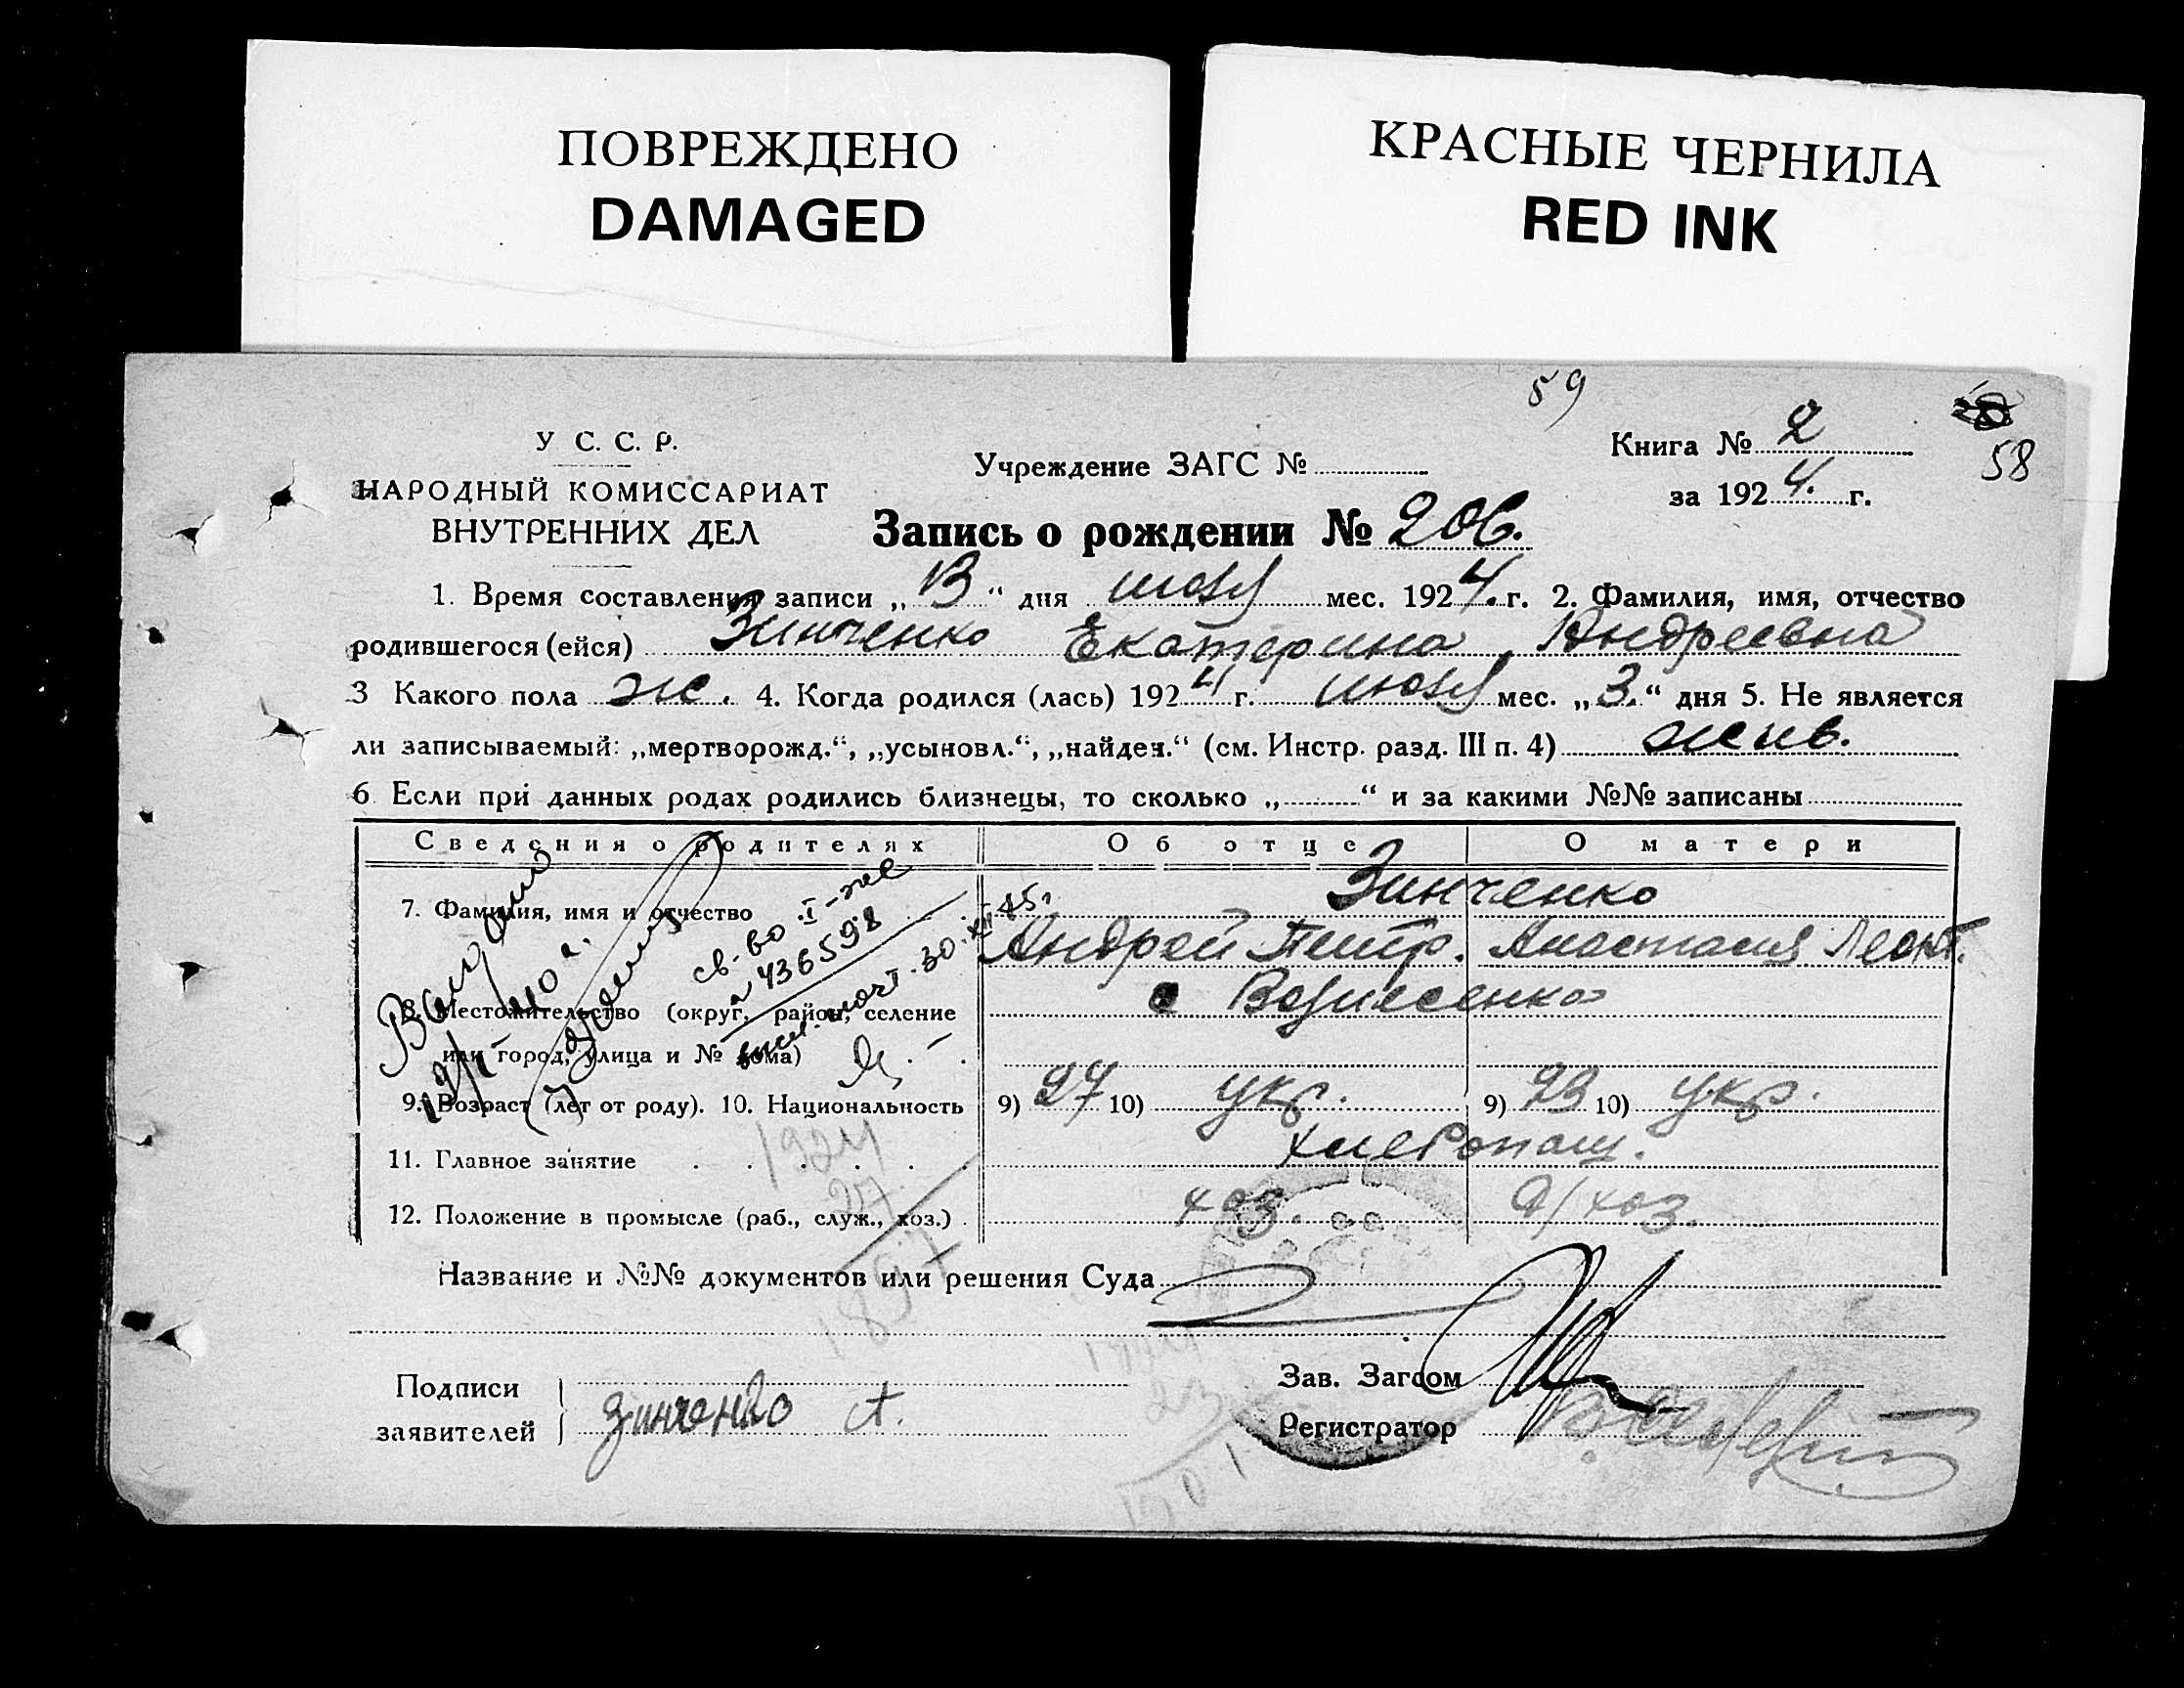 ПОВРЕЖДЕНО
DAMAGED
КРАСНЫЕ ЧЕРНИЛА
RED INK
59
58
У С. С. Р.
НАРОДНЫЙ КОМИССАРИАТ
ВНУТРЕННИХ ДЕЛ
Учреждение ЗАГС №
Книга № 2
за 1924. г.
Запись о рождении № 206.
1. Время составления записи „ 13 “ дня июля мес. 1924. г. 2. Фамилия, имя, отчество
родившегося (ейся) Зинченко Екатерина Андреевна
3 Какого пола ж. 4. Когда родился (лась) 1924 г. июля мес. „ 3. “ дня 5. Не является
ли записываемый: „мертворожд.“, „усыновл.“, „найден.“ (см. Инстр. разд. III п. 4) жив.
6 Если при данных родах родились близнецы, то сколько „ “ и за какими №№ записаны
Сведения о родителях Об отце О матери
7. Фамилия, имя и отчество Зинченко
Андрей Петр. Анастасия Леонт.
8. Местожительство (округ, район, селение с Вознесенка
или город, улица и № дома)
9. Возраст (лет от роду). 10. Национальность 9) 27 10) укр. 9) 23 10) укр.
11. Главное занятие хлебопаш.
12. Положение в промысле (раб., служ., хоз.) хоз. д/хоз.
св-во I-же
436598
30.XII 45.
1924
27
1897
Название и №№ документов или решения Суда
Подписи
заявителей Зинченко А.
23
1901
Зав. Загсом
Регистратор